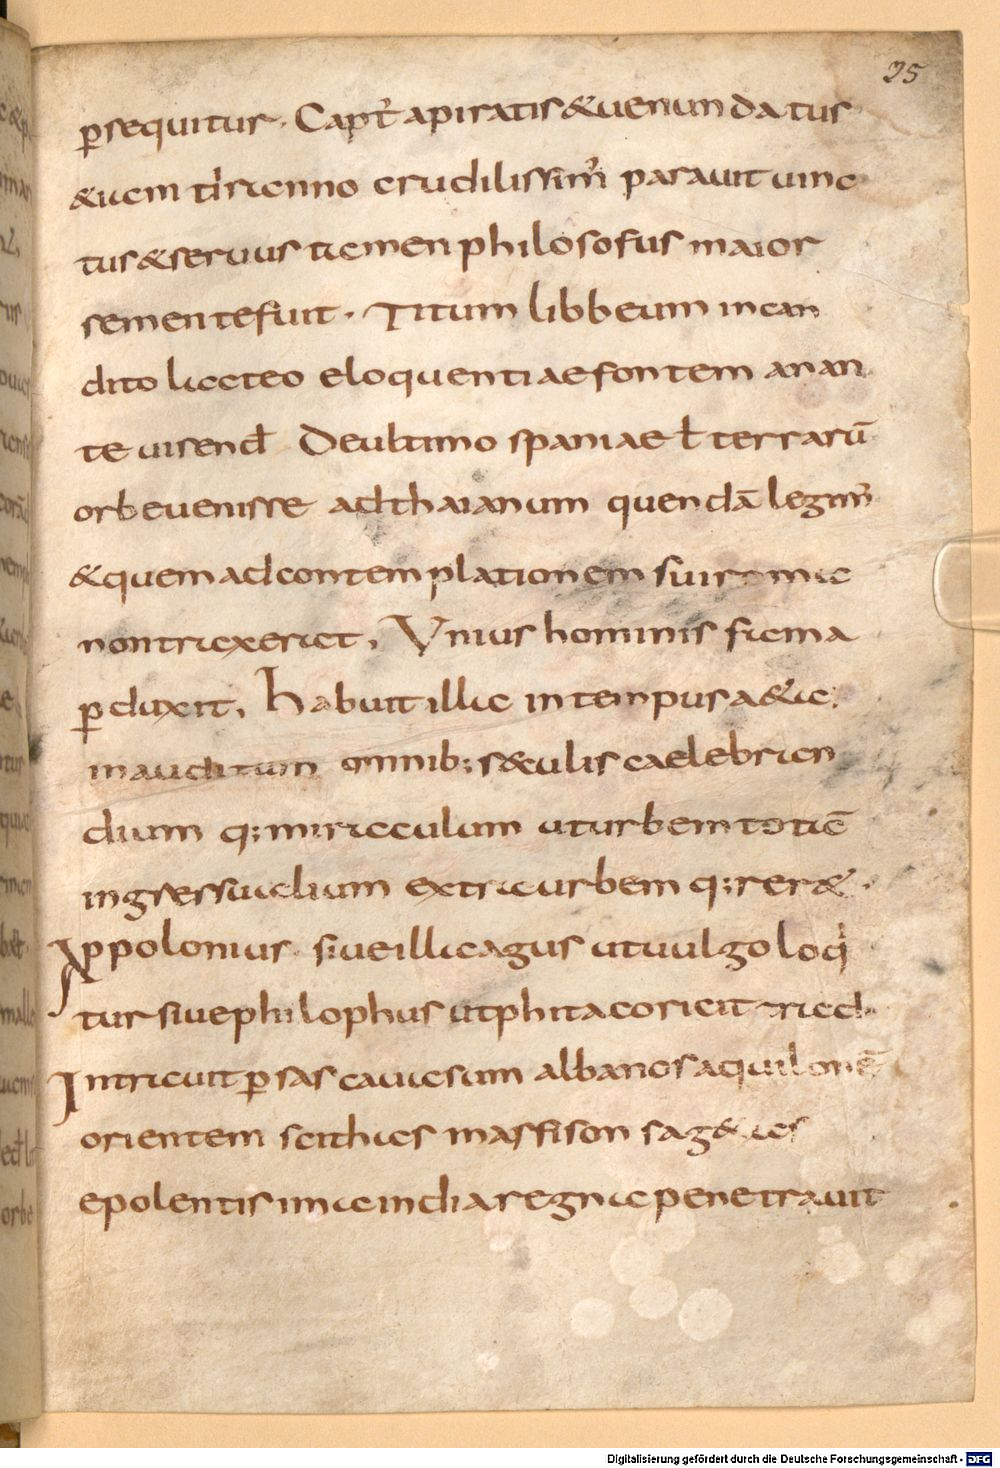 25
ꝑsequitur. Capt᷒ apiratis &uenundatus
&uem tirienno crudilissim᷒ parauit uinc
tus &seruus tiemen philosofus maior
sementefuit. Titum libbeum incan
dito liccteo eloquentiae fontem anan
te uisend̄ Deultimo spaniae ł terrarū
orbeuenisse adthaianum quendā legim᷒
&quem adcontemplationem sui romic
nontriexeriet, Vnius hominis fiema
ꝑduxit, habuit illic intempus a&ic;
inauditum omnib; s&ulis caelebrien
dium q; miricculum uturbem totiē
ingsessuidium extricurbem q; rer&.
Appolonius. siue illicagus utuulgo loqi
tur siue philophus utphitacorieit tricd.
Intricuit ꝑsas cauicsum albanos aquilonē
orientem scithics massison sag&ics
epolentis imicindia regnic penetrauit
Digitalisierung gefördert durch die Deutsche Forschungsgemeinschaft - DFG